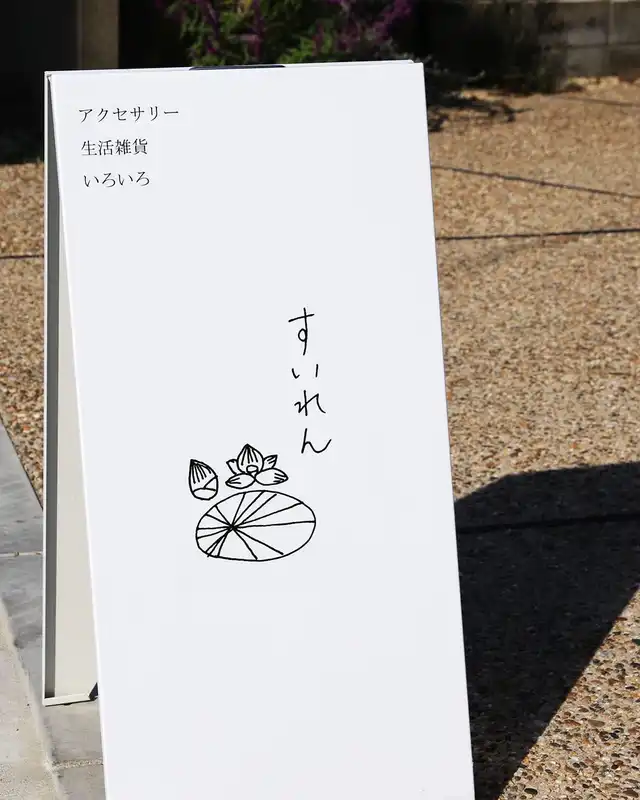 アクセサリー
生活雑貨
いろいろ
すいれん